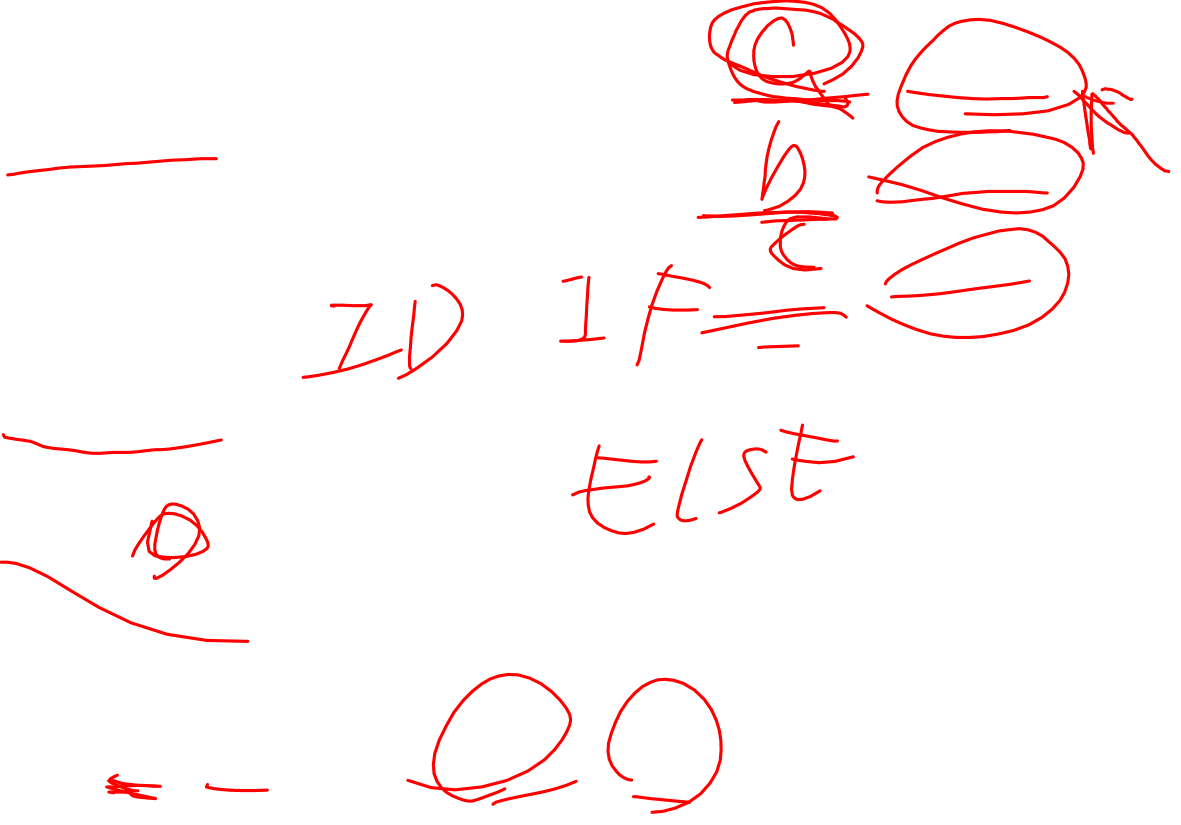 a
b
c
ID IF
ELSE